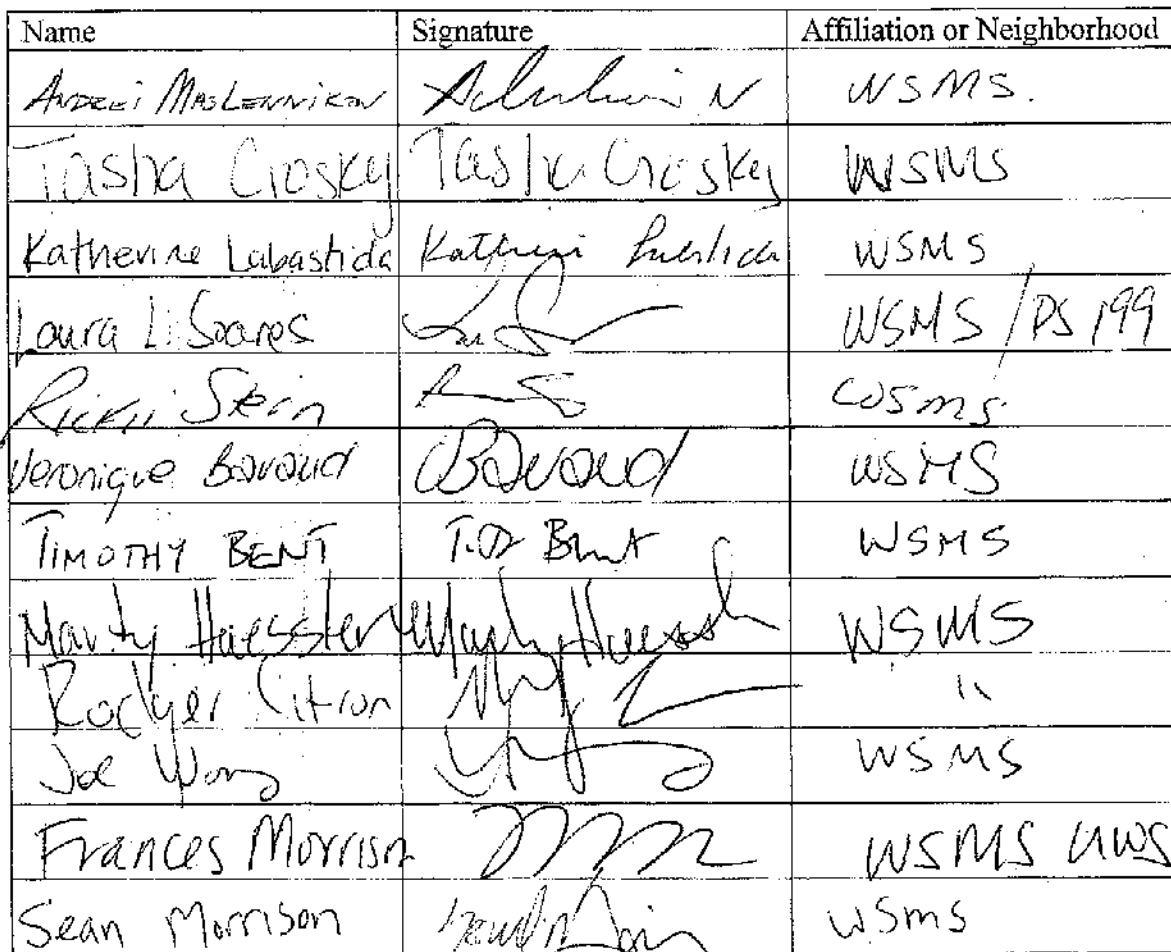 Name Signature Affiliation or Neighborhood
Andrei Maslennikov WSMS.
Tasha Crosky Tasha Crosky WSMS
Katherine Labastida WSMS
Laura Li Soares WSMS / PS 199
Rickii Stein WSMS
Veronique Bavoud Bavoud WSMS
TIMOTHY BENT WSMS
Marty Haessler Marty WSMS
Rodger Citron "
Joe Wong WSMS
Frances Morrison WSMS UWS
Sean Morrison WSMS